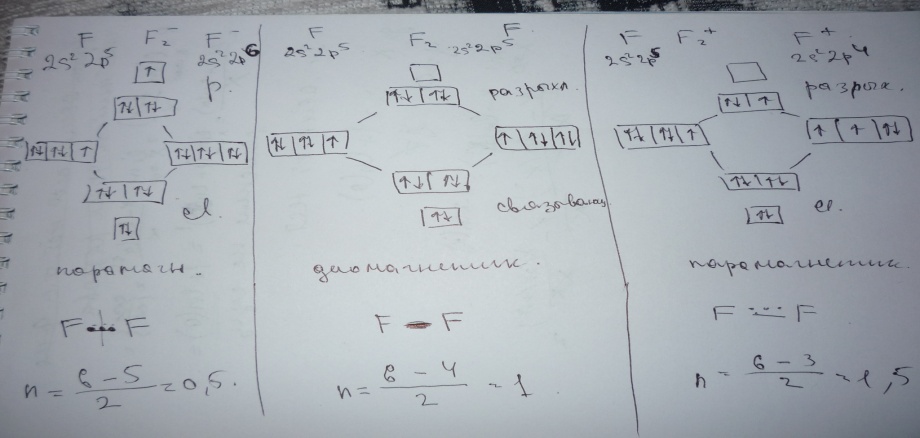 F F₂⁻ F⁻
2s² 2p⁵ 2s² 2p⁶
р.
св.
парамагн.
F F
n = (6 − 5)/2 = 0,5.
F F₂ F
2s² 2p⁵ 2s² 2p⁵
разрыхл.
связывающ
диамагнетик.
F — F
n = (6 − 4)/2 = 1
F F₂⁺ F⁺
2s² 2p⁵ 2s² 2p⁴
разрых.
св.
парамагнетик.
F F
n = (6 − 3)/2 = 1,5